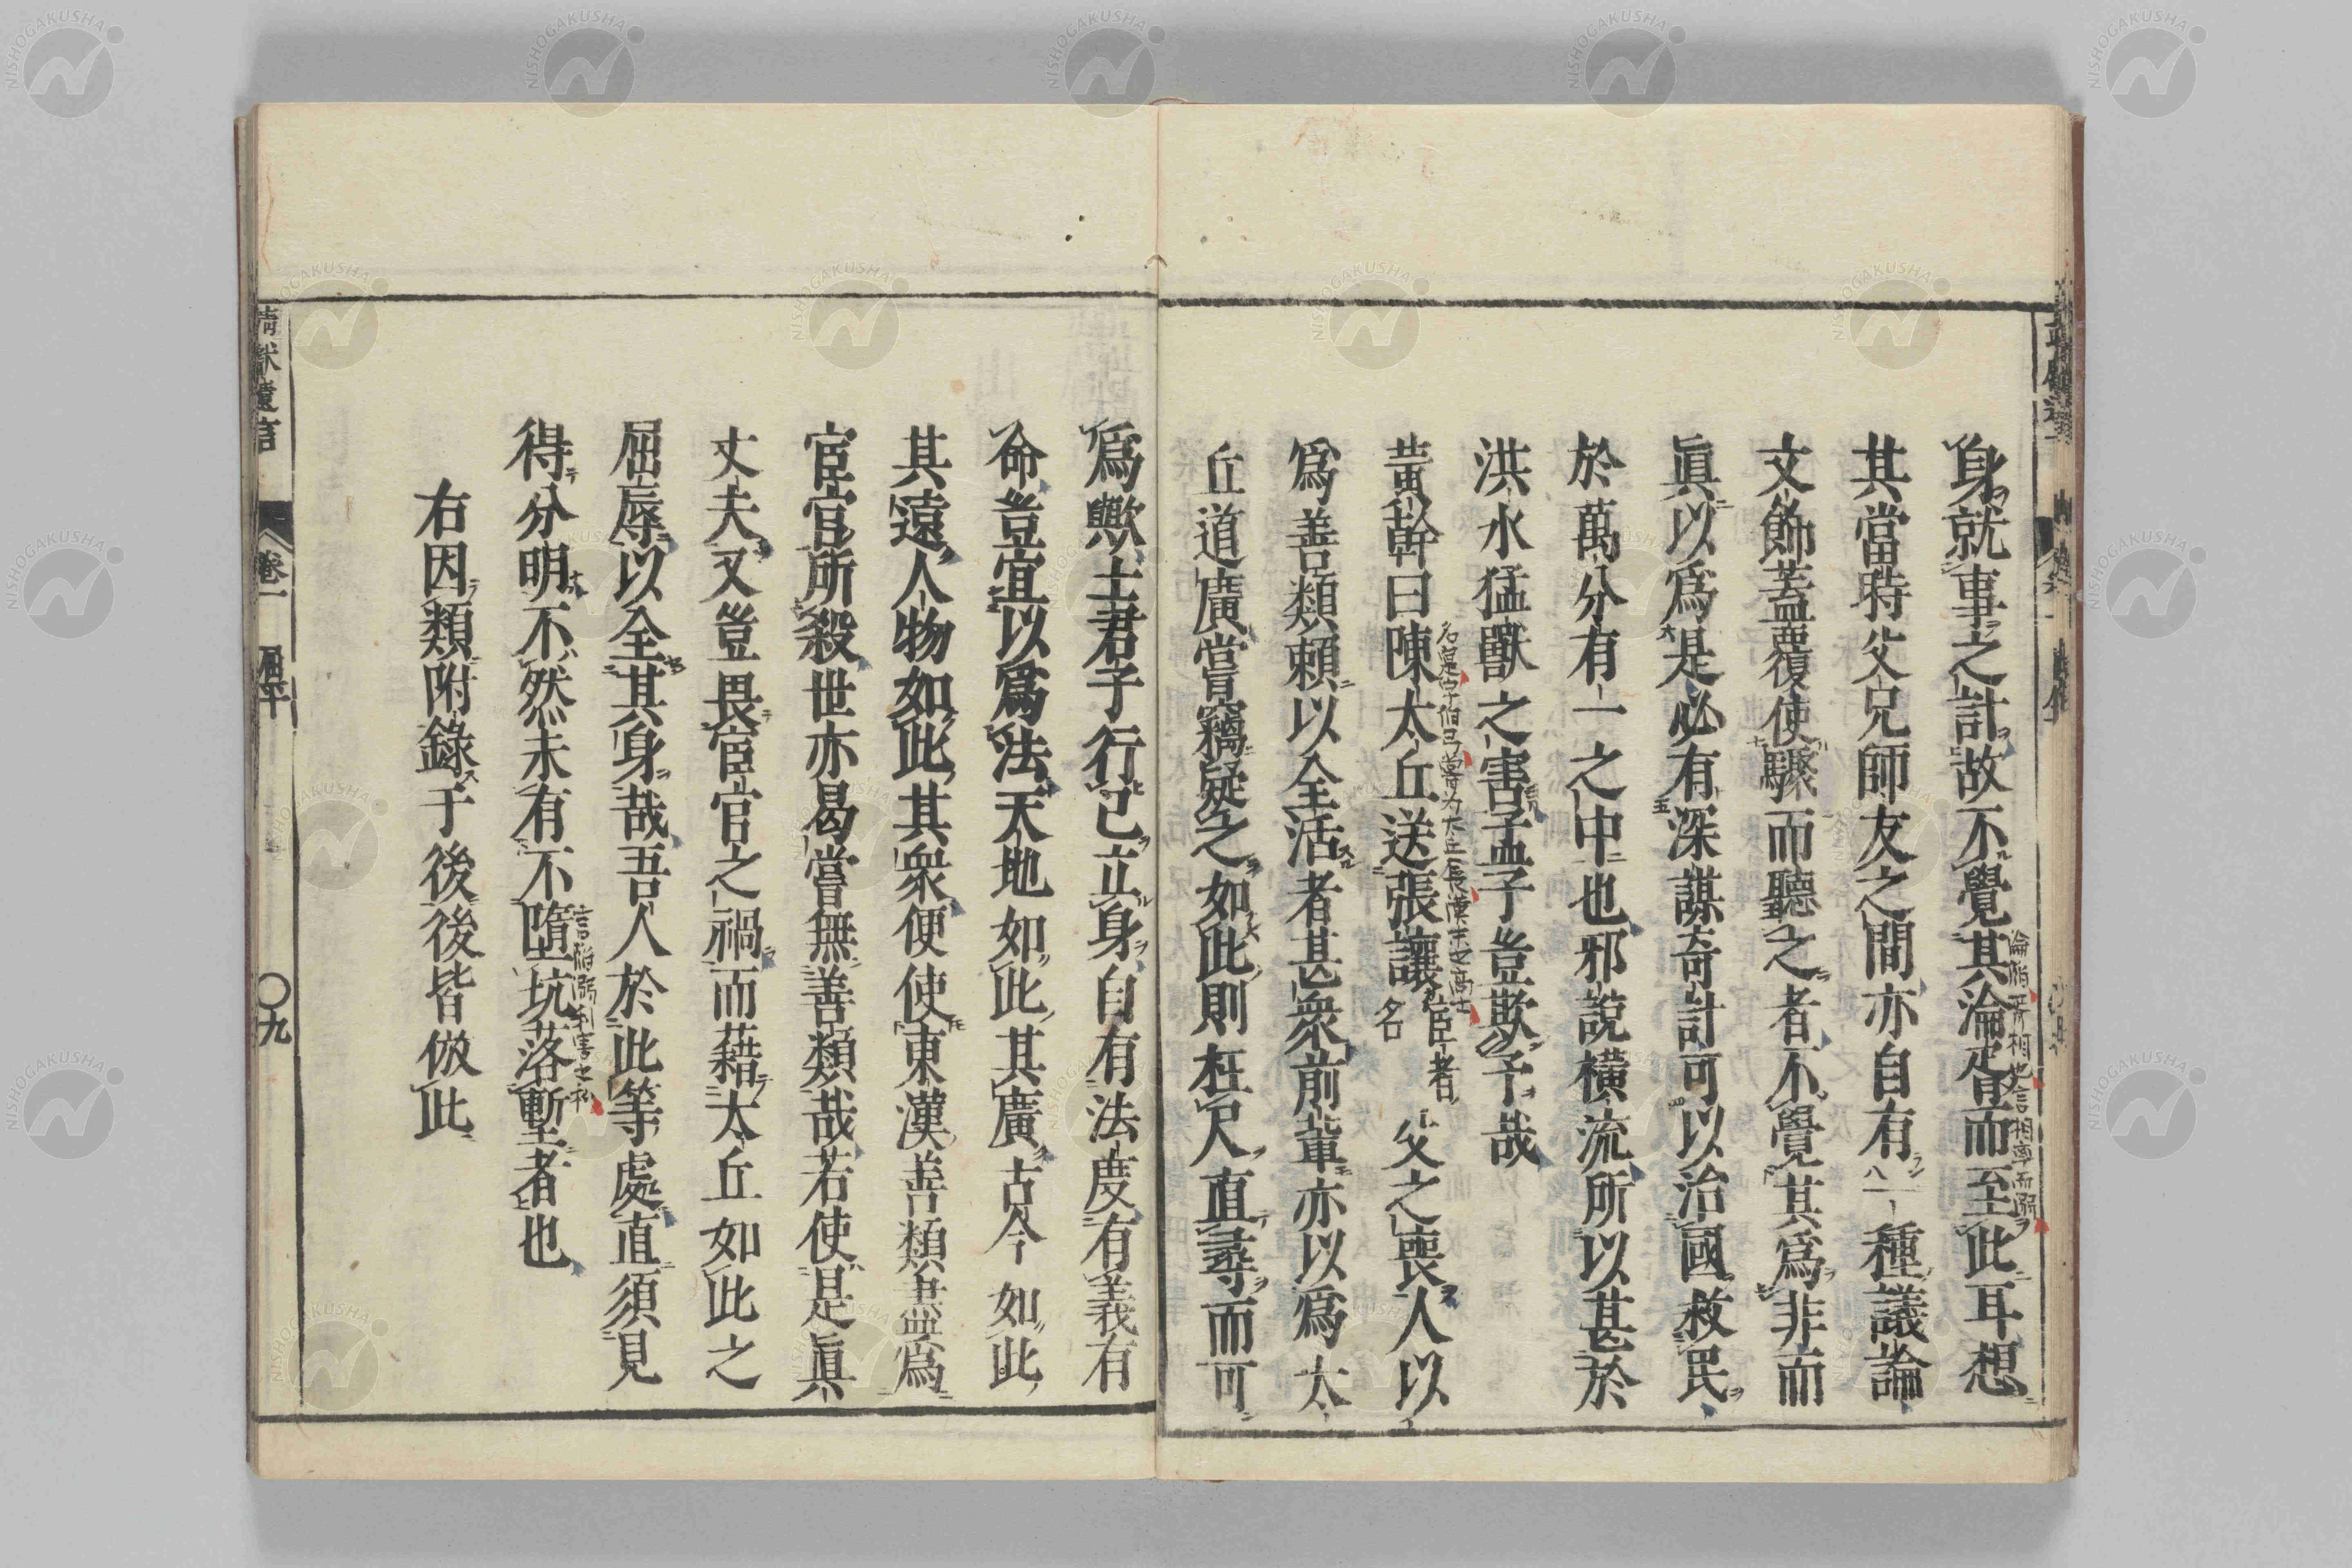 身就事之計故不覺其淪胥而至此耳想
其當時父兄師友之間亦自有一種議論
文飾蓋覆使驟而聽之者不覺其爲非而
眞以爲是必有深謀奇計可以治國救民
於萬分有一之中也邪說橫流所以甚於
洪水猛獸之害孟子豈欺予哉
黃幹曰陳太丘送張讓宦者名父之喪人以
爲善類賴以全活者甚衆前輩亦以爲太
丘道廣嘗竊疑之如此則枉尺直尋而可
爲歟士君子行己立身自有法度有義有
命豈宜以爲法天地如此其廣古今如此
其遠人物如此其衆便使東漢善類盡爲
宦官所殺世亦曷嘗無善類哉若使是眞
丈夫又豈畏宦官之禍而藉太丘如此之
屈辱以全其身哉吾人於此等處直須見
得分明不然未有不墮坑落塹者也
右因類附錄于後後皆倣此
靖獻遺言 卷一 屈平 〇九
NISHOGAKUSHA